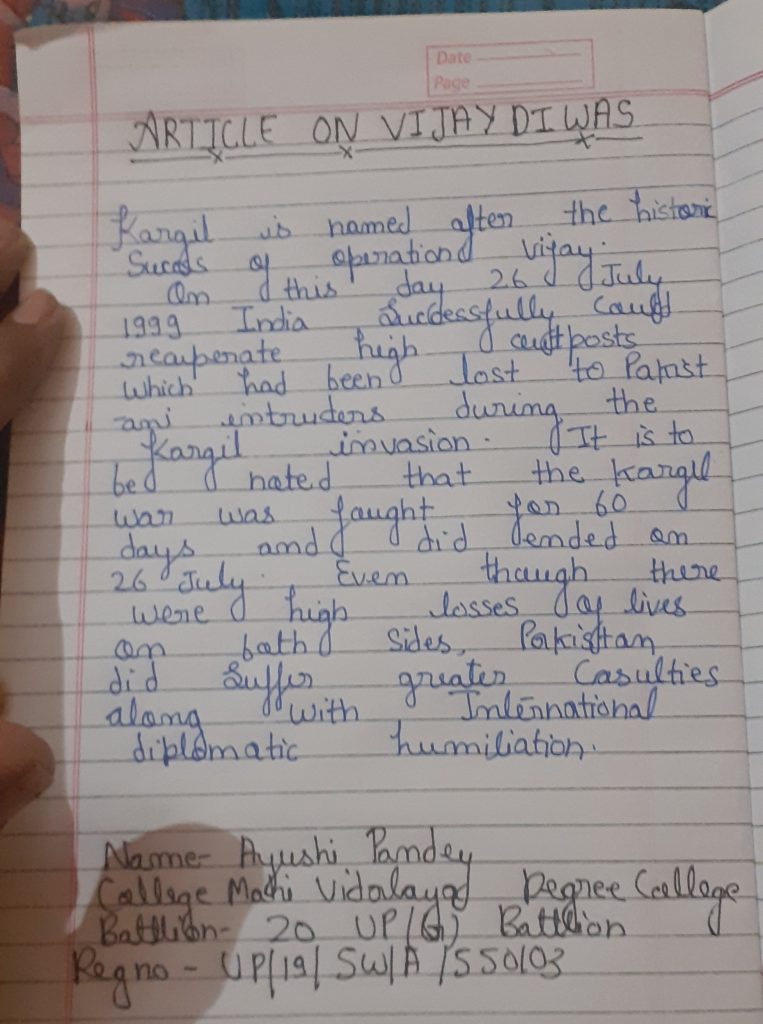 Date
Page
ARTICLE ON VIJAY DIWAS
Kargil is named after the historic
Sucess of operation vijay.
On this day 26 July
1999 India Successfully
recuperate high outposts
which had been lost to Pakist
ani intruders during the
Kargil invasion. It is to
be noted that the Kargil
war was fought for 60
days and did ended on
26 July. Even though there
were high losses of lives
on both sides, Pakisttan
did Suffer greater Casulties
along with International
diplomatic humiliation.
Name- Ayushi Pandey
College Vidalaya Degree College
Battlion- 20 UP/(G) Battlion
Reg no - UP/19/SW/A/550103